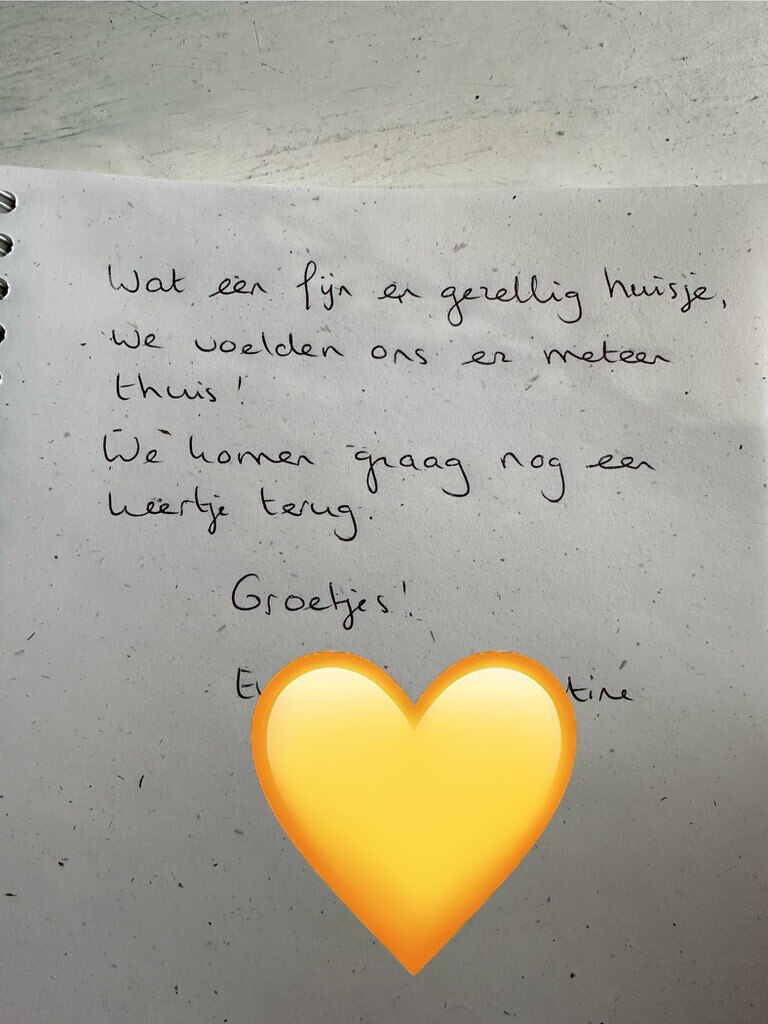 Wat een fijn en gezellig huisje,
We voelden ons er meteen
thuis!
We komen graag nog een
keertje terug.
Groetjes!